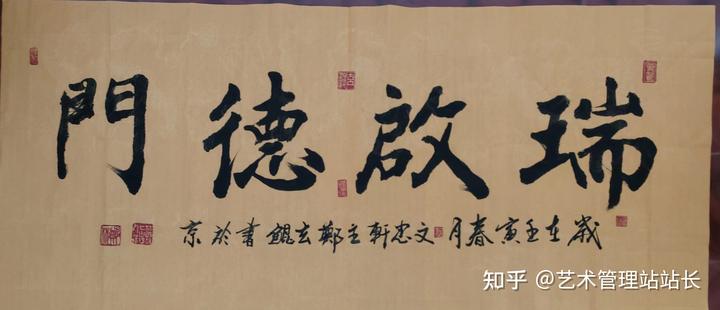 瑞啟德門
歲在壬寅春月文忠軒主鄭玄鯤書於京
知乎 @艺术管理站站长